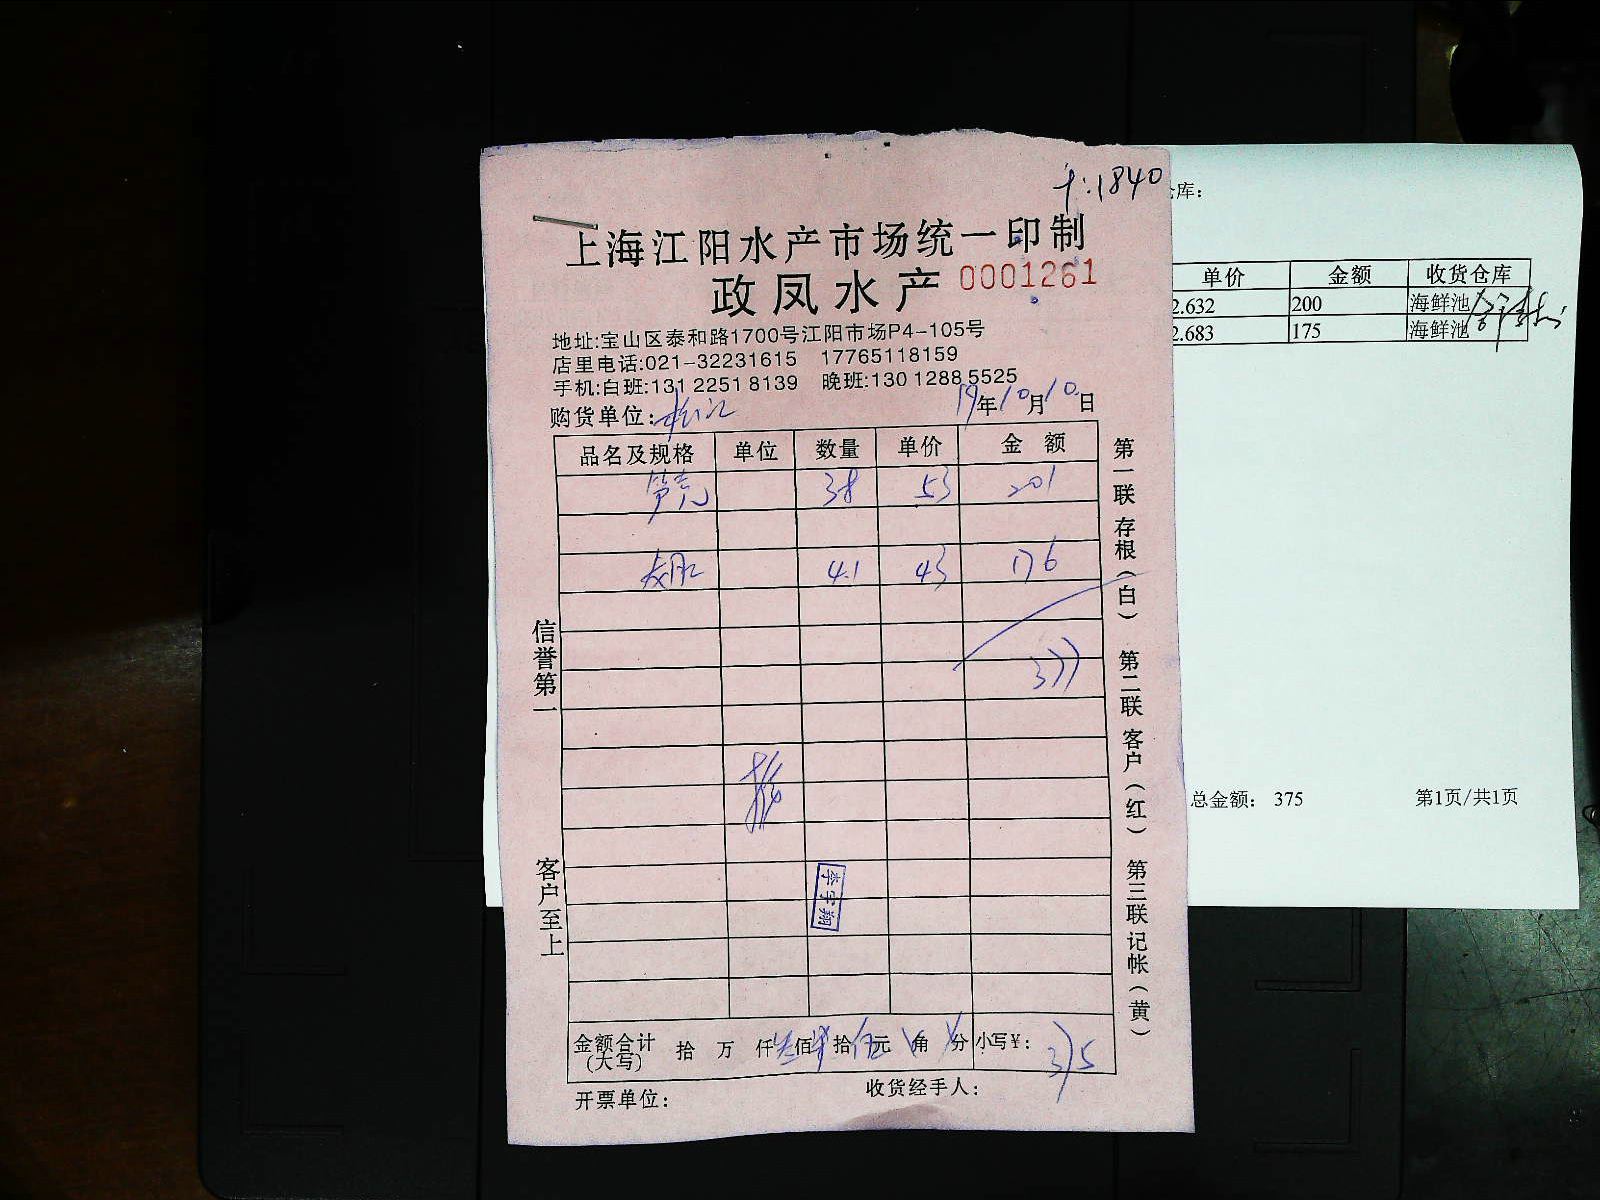 十:1840
上海江阳水产市场统一印制
政凤水产 0001261
地址:宝山区泰和路1700号江阳市场P4-105号
店里电话:021-32231615 17765118159
手机:白班:131 2251 8139 晚班:130 1288 5525
购货单位: 19年10月10日
品名及规格 单位 数量 单价 金 额
笋壳 38 53 201
4.1 43 176
377
金额合计(大写) 拾 万 仟叁佰柒拾伍元 角 分 小写¥: 375
开票单位: 收货经手人:
信誉第一
客户至上
李宇翔
第一联存根(白) 第二联客户(红) 第三联记帐(黄)
仓库:
单价 金额 收货仓库
2.632 200 海鲜池
2.683 175 海鲜池
总金额: 375 第1页/共1页